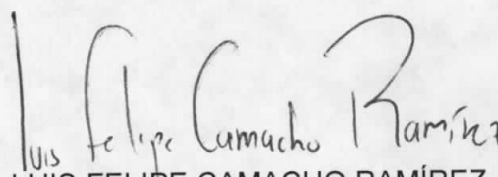 Luis Felipe Camacho Ramírez
LUIS FELIPE CAMACHO RAMÍREZ